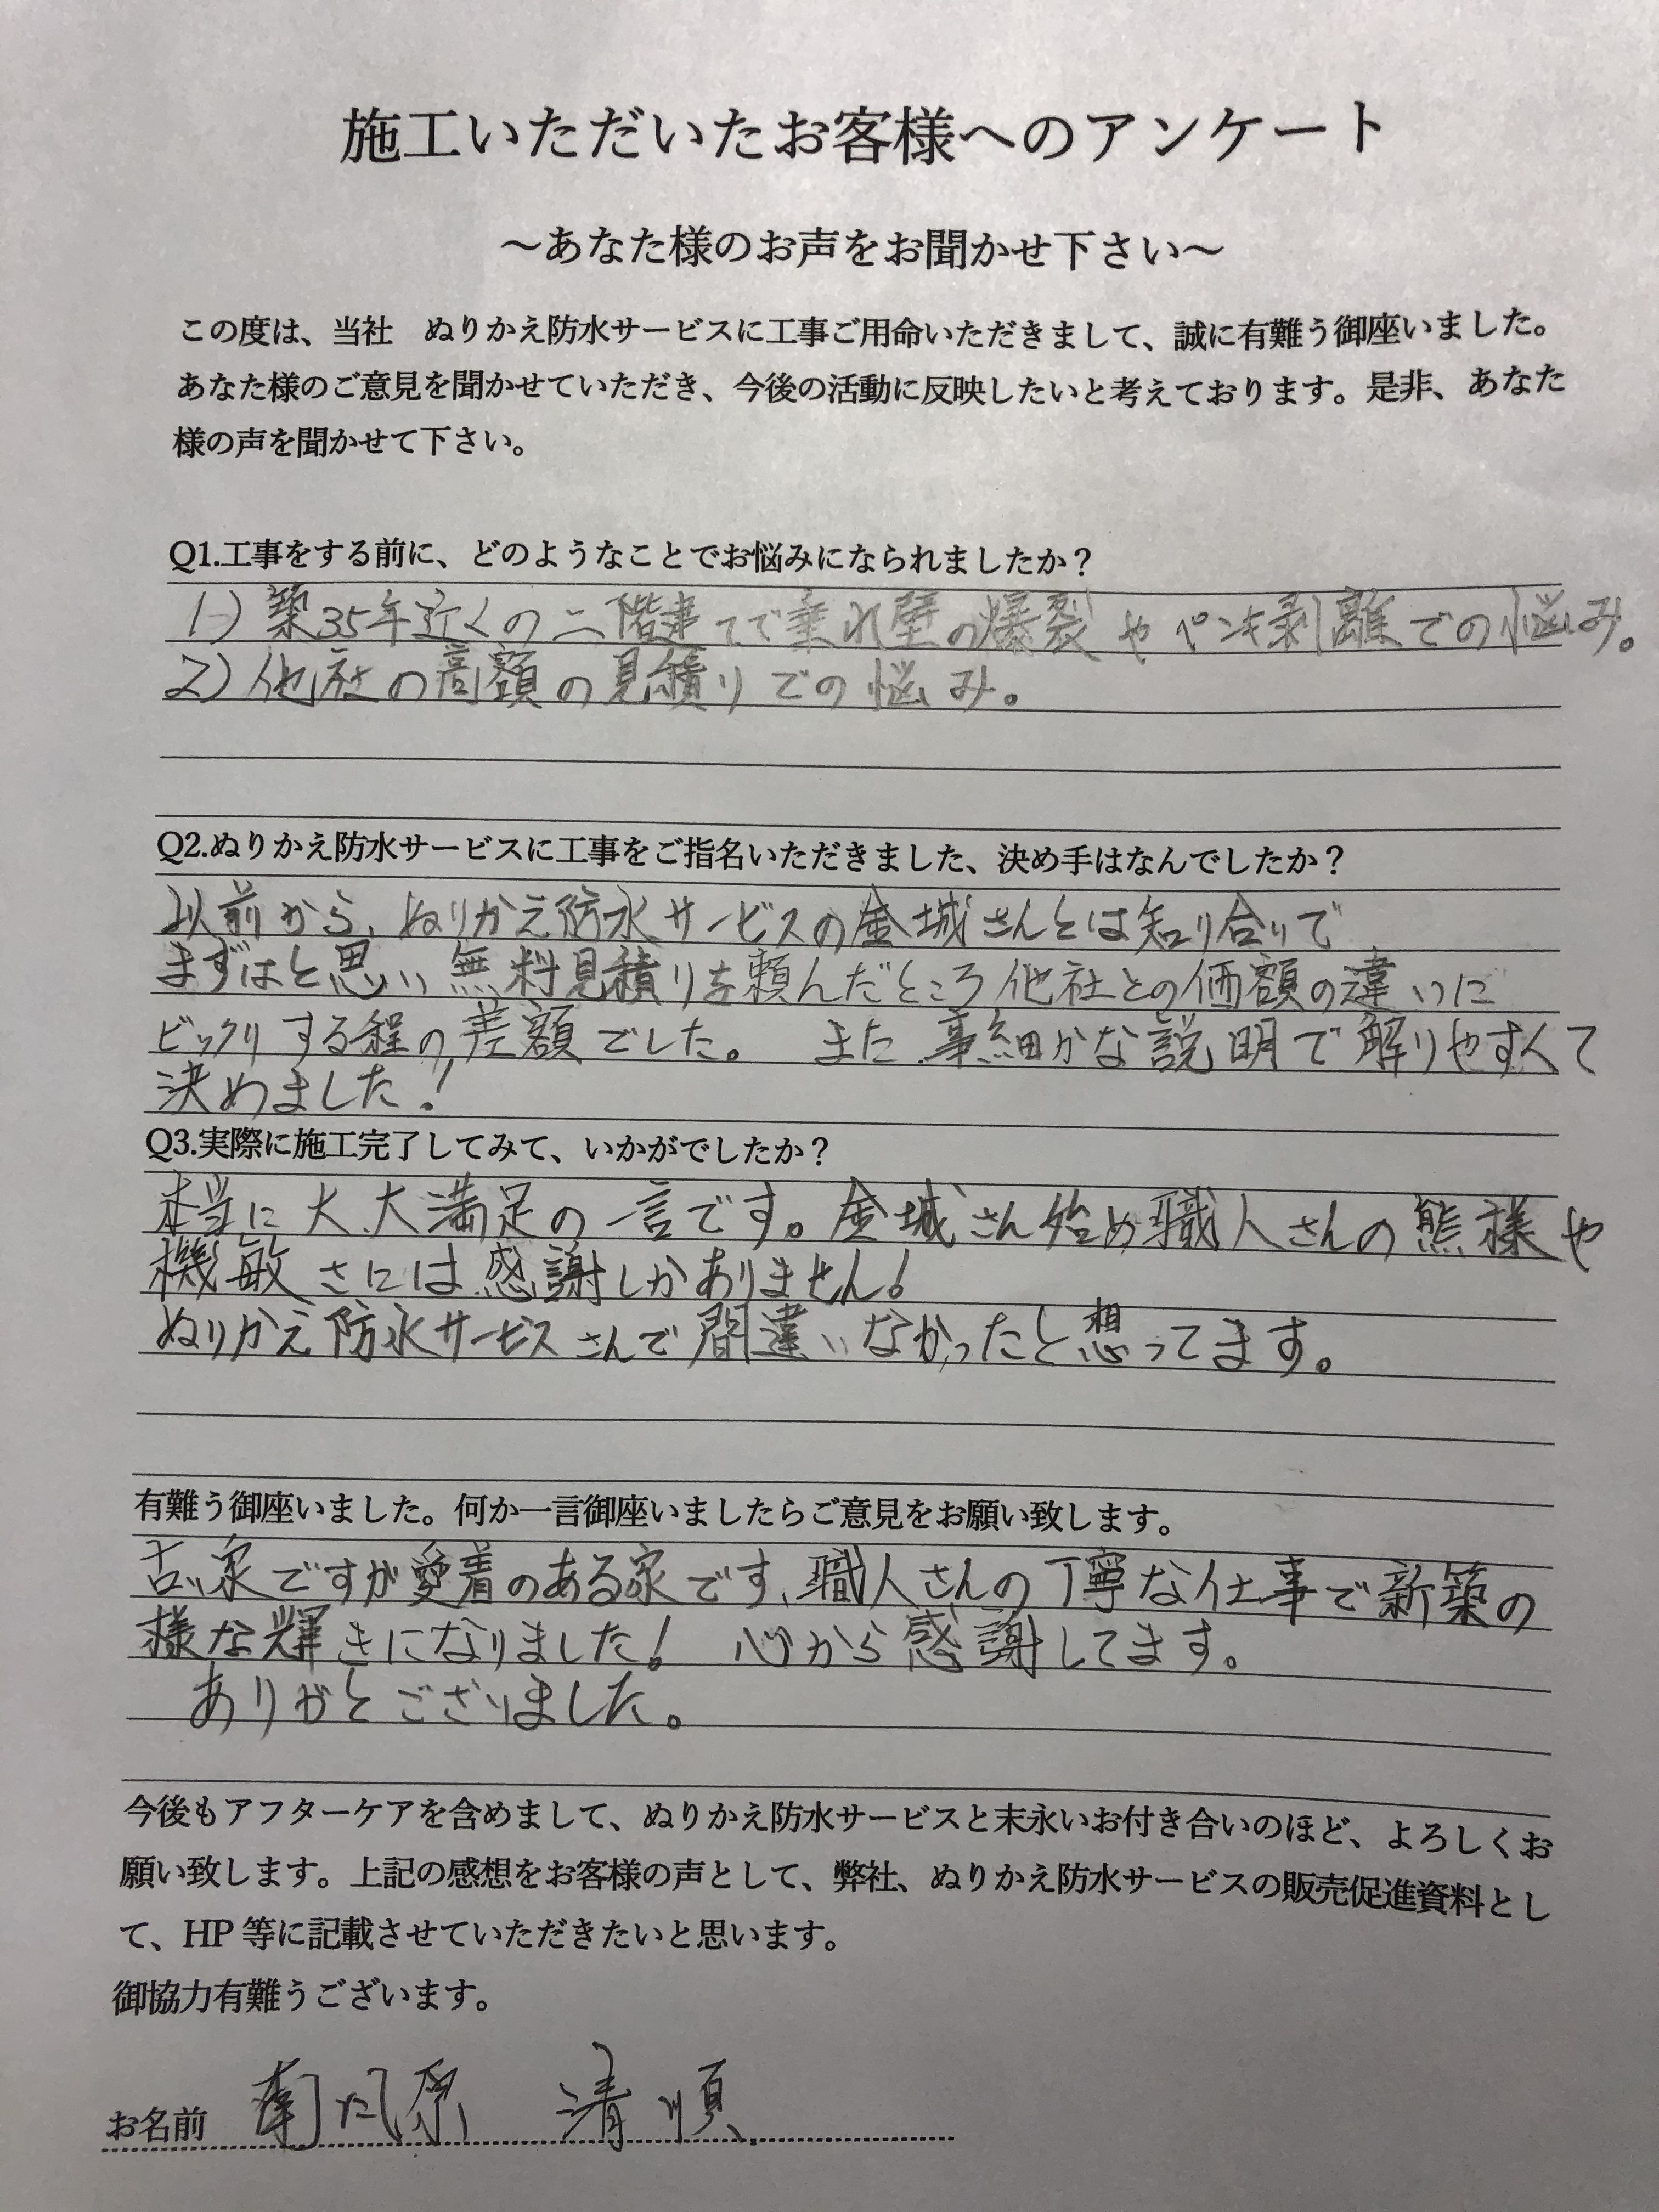 施工いただいたお客様へのアンケート
～あなた様のお声をお聞かせ下さい～
この度は、当社　ぬりかえ防水サービスに工事ご用命いただきまして、誠に有難う御座いました。
あなた様のご意見を聞かせていただき、今後の活動に反映したいと考えております。是非、あなた
様の声を聞かせて下さい。
Q1.工事をする前に、どのようなことでお悩みになられましたか？
1) 築35年近くの二階建てで垂れ壁の爆裂やペンキ剥離での悩み。
2) 他社の高額の見積りでの悩み。
Q2.ぬりかえ防水サービスに工事をご指名いただきました、決め手はなんでしたか？
以前から、ぬりかえ防水サービスの金城さんとは知り合いで
まずはと思い無料見積りを頼んだところ他社との価額の違いに
ビックリする程の差額でした。　また、事細かな説明で解りやすくて
決めました！
Q3.実際に施工完了してみて、いかがでしたか？
本当に大、大満足の一言です。金城さん始め職人さんの熊様や
機敏さには感謝しかありません！
ぬりかえ防水サービスさんで間違いなかったと想ってます。
有難う御座いました。何か一言御座いましたらご意見をお願い致します。
古い家ですが愛着のある家です、職人さんの丁寧な仕事で新築の
様な輝きになりました！　心から感謝してます。
ありがとございました。
今後もアフターケアを含めまして、ぬりかえ防水サービスと末永いお付き合いのほど、よろしくお
願い致します。上記の感想をお客様の声として、弊社、ぬりかえ防水サービスの販売促進資料とし
て、HP 等に記載させていただきたいと思います。
御協力有難うございます。
お名前　南風原　清順